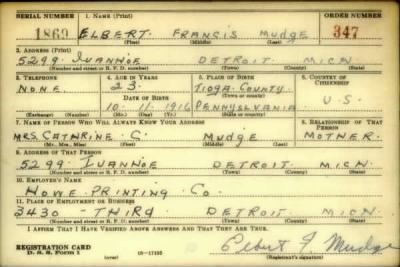 SERIAL NUMBER 1. NAME (Print) ORDER NUMBER
1869 ELBERT FRANCIS MUDGE 347
(First) (Middle) (Last)
2. ADDRESS (Print)
5299 IVANHOE DETROIT MICH
(Number and street or R. F. D. number) (Town) (County) (State)
3. TELEPHONE 4. AGE IN YEARS 5. PLACE OF BIRTH 6. COUNTRY OF CITIZENSHIP
NONE 23 TIOGA COUNTY
DATE OF BIRTH (Town or county) U.S.
10-11-1916 PENNYSLVANIA
(Exchange) (Number) (Mo.) (Day) (Yr.) (State or country)
7. NAME OF PERSON WHO WILL ALWAYS KNOW YOUR ADDRESS 8. RELATIONSHIP OF THAT PERSON
MRS. CATHRINE C. MUDGE MOTHER
(Mr., Mrs., Miss) (First) (Middle) (Last)
9. ADDRESS OF THAT PERSON
5299 IVANHOE DETROIT MICH
(Number and street or R. F. D. number) (Town) (County) (State)
10. EMPLOYER'S NAME
HOWE PRINTING CO.
11. PLACE OF EMPLOYMENT OR BUSINESS
3430 - THIRD DETROIT MICH.
(Number and street or R. F. D. number) (Town) (County) (State)
I AFFIRM THAT I HAVE VERIFIED ABOVE ANSWERS AND THAT THEY ARE TRUE.
REGISTRATION CARD
D. S. S. Form 1 (over) Elbert F Mudge
(Registrant's signature)